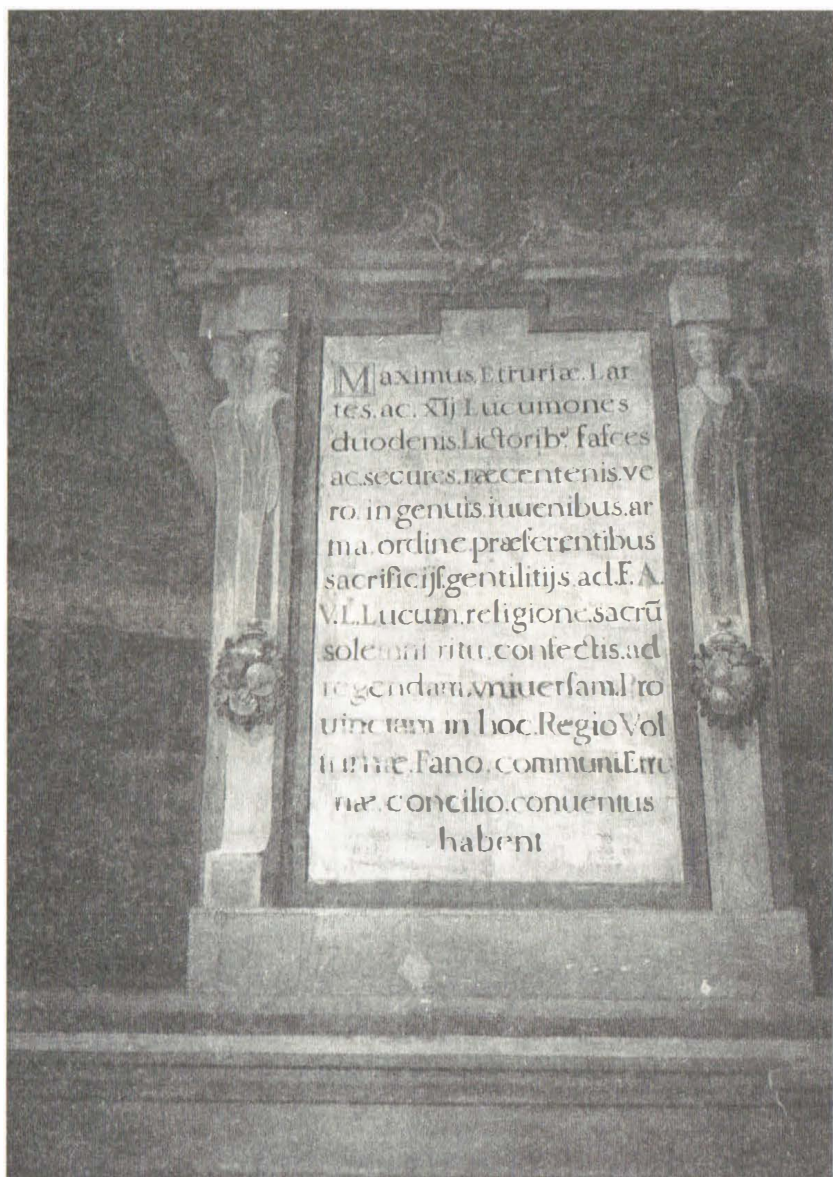 Maximus.Etruriæ.Lar
tes.ac.XIJ Lucumones
duodenis.Lictorib⁹ faſces
ac.secures.ræcentenis.ve
ro.ingenuis.iuuenibus.ar
ma.ordine.præferentibus
sacrificijſ.gentilitijs.ad.F.A.
V.L.Lucum.religione.sacrū
solemni ritu.confectis.ad
regendam.vniuerſam.Pro
uinciam in hoc.Regio Vol
turnæ.Fano.communi.Etru
riæ.concilio.conuentus
habent